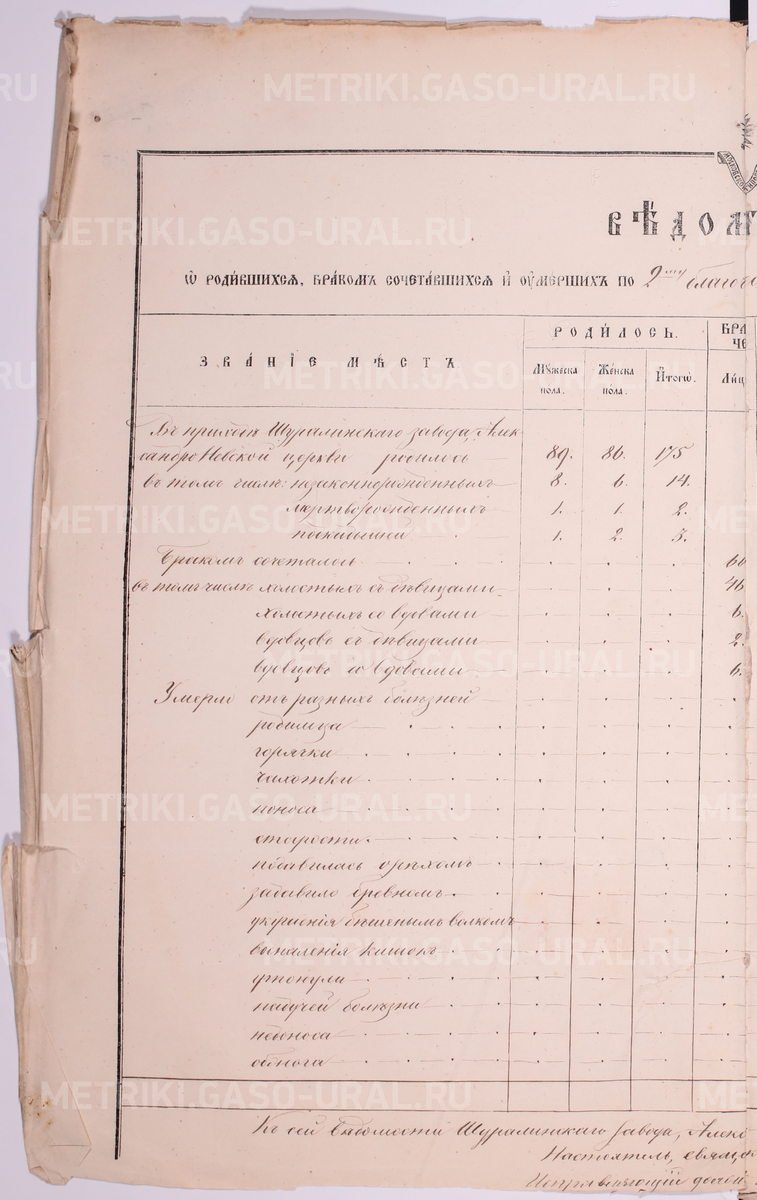 ВѢДОМ
Ѡ РОДИ́ВШИХСѦ, БРА́КОМЪ СОЧЕТА́ВШИХСѦ И҆ ОУ҆МЕ́РШИХЪ ПО 2му благоч
ЗВА́НІЕ МѢ́СТЪ.
РОДИ́ЛОСЬ.
БРА
ЧЕ
Мꙋ́жеска пола.
Же́нска по́ла.
И҆тогѡ.
Ли́ц
Въ приходѣ Шуралинскаго завода, Алек
сандро Невской церкви родилось 89. 86. 175
въ томъ числѣ: незаконнорожденныхъ 8. 6. 14.
мертворожденныхъ 1. 1. 2.
1. 2. 3.
Бракомъ сочеталось 60
въ томъ числѣ холостыхъ съ дѣвицами 46
холостыхъ со вдовами 6.
вдовцовъ съ дѣвицами 2.
вдовцовъ со вдовами 6.
Умерло отъ разныхъ болѣзней
родимца
горячки
чахотки
поноса
старости
подавилась орѣхомъ
задавило бревномъ
укушенія бѣшенымъ волкомъ
воспаленія кишокъ
утонули
падучей болѣзни
Къ сей Вѣдомости Шуралинскаго завода, Алекс
Настоятель, священ
METRIKI.GASO-URAL.RU